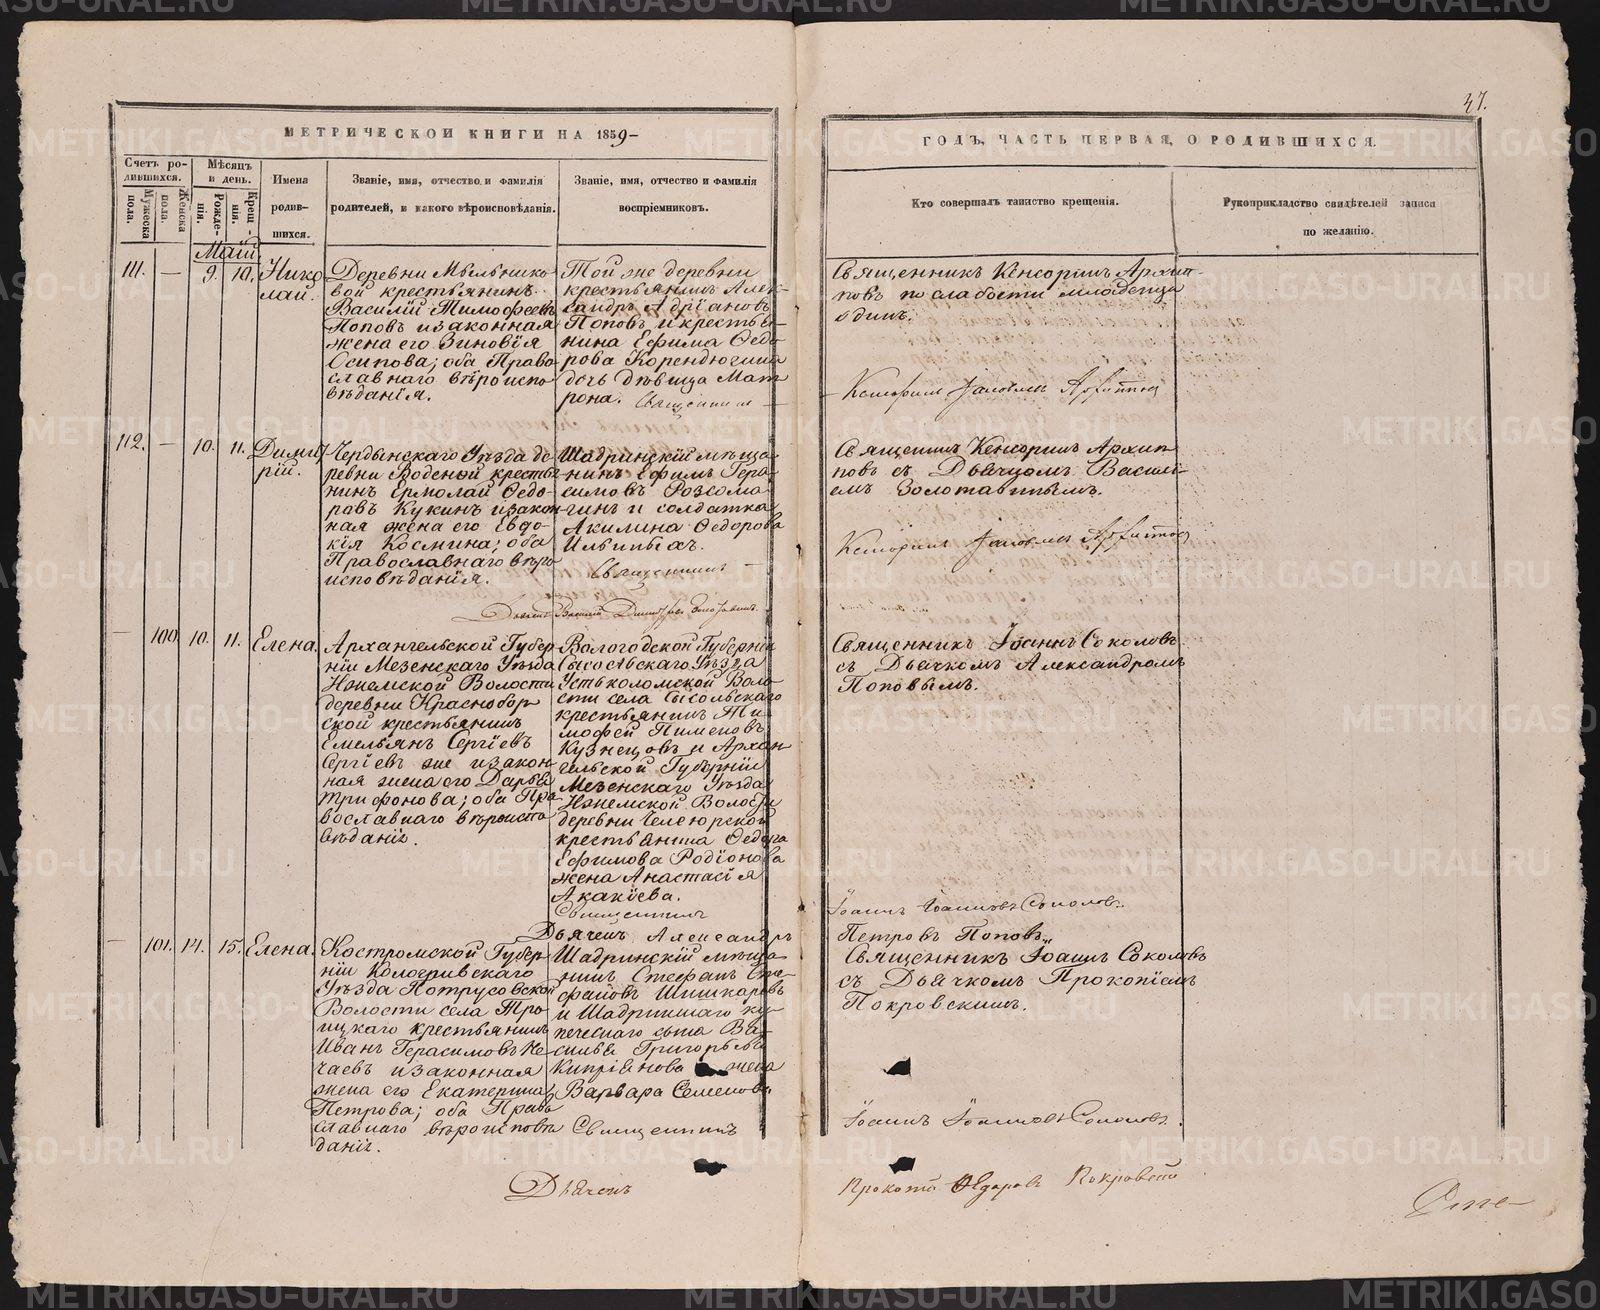 47.
МЕТРИЧЕСКОЙ КНИГИ НА 1859
ГОДЪ, ЧАСТЬ ПЕРВАЯ, О РОДИВШИХСЯ.
Счетъ родившихся.
Мужеска пола.
Женска пола.
Мѣсяцъ и день.
Рожденія.
Крещенія.
Имена родившихся.
Званіе, имя, отчество и фамилія
родителей, и какого вѣроисповѣданія.
Званіе, имя, отчество и фамилія
воспріемниковъ.
Кто совершалъ таинство крещенія.
Рукоприкладство свидѣтелей записи
по желанію.
Май
111. — 9. 10. Нико
лай.
Деревни Мѣльнико
вой крестьянинъ
Василій Тимофеевъ
Поповъ и законная
жена его Зиновія
Осипова; оба Право
славнаго вѣроиспо
вѣданія.
Той же деревни
крестьянинъ Алек
сандръ Адріановъ
Поповъ и крестья
нина Ефима Ѳедо
рова
дочь дѣвица Мат
рона. Священникъ
Священникъ Кенсоринъ Архип
повъ по слабости младенца
одинъ.
Кенсоринъ Архиповъ
112. — 10. 11. Димит
рій.
Чердынскаго Уѣзда де
ревни крестья
нинъ Ермолай Ѳедо
ровъ Кукинъ и закон
ная жена его Евдо
кія Космина; оба
Православнаго вѣро
исповѣданія.
Шадринскій мѣща
нинъ Ефимъ Гера
симовъ
и солдатка
Акилина Ѳедорова
Священникъ
Дьячекъ Василій Димитріевъ
Священникъ Кенсоринъ Архип
повъ съ Дьячкомъ Василі
емъ Золотавинымъ.
Кенсоринъ Архиповъ
— 100. 10. 11. Елена.
Архангельской Губер
ніи Мезенскаго Уѣзда
Ижемской Волости
деревни Краснобор
ской крестьянинъ
Емельянъ Сергіевъ
Сергіевъ же и закон
ная жена его Дарья
Трифонова; оба Пра
вославнаго вѣроиспо
вѣданія.
Вологодской Губерніи
Уѣзда
Устьколомской Воло
сти села Сысольскаго
крестьянинъ Ти
мофей Пименовъ
Кузнецовъ и Архан
гельской Губерніи
Мезенскаго Уѣзда
Ижемской Волости
деревни
крестьянина Ѳедора
Ефимова Родіонова
жена Анастасія
Акакіева.
Священникъ
Дьячекъ Александръ
Священникъ Іоаннъ Соколовъ
съ Дьячкомъ Александромъ
Поповымъ.
Іоаннъ Іоанновъ Соколовъ.
Петровъ Поповъ.
— 101. 14. 15. Елена.
Костромской Губер
ніи Кологривскаго
Уѣзда Потрусовской
Волости села Тро
ицкаго крестьянинъ
Иванъ Герасимовъ Не
чаевъ и законная
жена его Екатерина
Петрова; оба Право
славнаго вѣроисповѣ
данія.
Шадринскій мѣща
нинъ Стефанъ Сте
фановъ Шишкаревъ
и Шадринскаго ку
печескаго сына Ва
силья Григорьева
Кипріянова жена
Варвара Семенова
Священникъ
Дьячекъ
Священникъ Іоаннъ Соколовъ
съ Дьячкомъ Прокопіемъ
Покровскимъ.
Іоаннъ Іоанновъ Соколовъ.
Прокопій Ѳедоровъ Покровскій